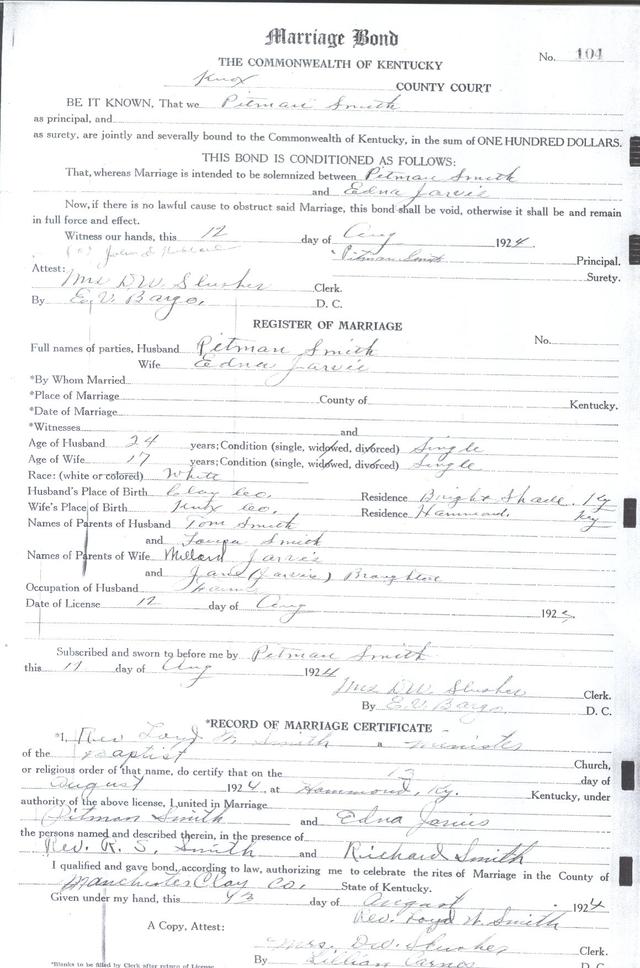 Marriage Bond
No. 104
THE COMMONWEALTH OF KENTUCKY
Knox COUNTY COURT
BE IT KNOWN, That we Pitman Smith
as principal, and
as surety, are jointly and severally bound to the Commonwealth of Kentucky, in the sum of ONE HUNDRED DOLLARS.
THIS BOND IS CONDITIONED AS FOLLOWS:
That, whereas Marriage is intended to be solemnized between Pitman Smith
and Edna Jarvis
Now, if there is no lawful cause to obstruct said Marriage, this bond shall be void, otherwise it shall be and remain
in full force and effect.
Witness our hands, this 12 day of Aug 1924.
Pitman Smith Principal.
Surety.
Attest:
Mrs D.W. Slusher Clerk.
By E.V. Bargo, D. C.
REGISTER OF MARRIAGE
No.
Full names of parties, Husband Pitman Smith
Wife Edna Jarvis
*By Whom Married
*Place of Marriage County of Kentucky.
*Date of Marriage
*Witnesses and
Age of Husband 24 years; Condition (single, widowed, divorced) Single
Age of Wife 17 years; Condition (single, widowed, divorced) Single
Race: (white or colored) White
Husband's Place of Birth Clay Co. Residence Bright Shade, Ky
Wife's Place of Birth Knox Co. Residence Hammond, Ky
Names of Parents of Husband Tom Smith
and Smith
Names of Parents of Wife Millard Jarvis
and Jane (Jarvis) Broughton
Occupation of Husband
Date of License 12 day of Aug 192
Subscribed and sworn to before me by Pitman Smith
this day of Aug 1924
Mrs D.W. Slusher Clerk.
By E.V. Bargo D. C.
*RECORD OF MARRIAGE CERTIFICATE
*I, Rev Loyd W Smith a minister
of the Baptist Church,
or religious order of that name, do certify that on the 13 day of
August 1924, at Hammond, Ky. Kentucky, under
authority of the above license, I united in Marriage
Pitman Smith and Edna Jarvis
the persons named and described therein, in the presence of
Rev. R. S. Smith and Richard Smith
I qualified and gave bond, according to law, authorizing me to celebrate the rites of Marriage in the County of
Manchester Clay Co. State of Kentucky.
Given under my hand, this day of August 1924
Rev. Loyd W. Smith
A Copy, Attest:
Mrs. D.W. Slusher Clerk.
*Blanks to be filled by Clerk after return of License By Lillian Carnes D. C.